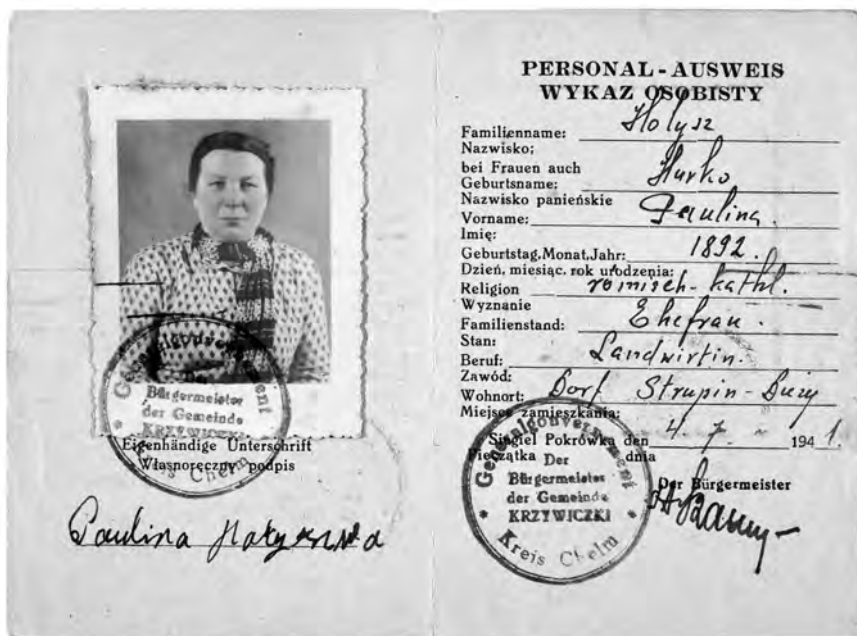 Generalgouvernement
Der
Bürgermeister
der Gemeinde
KRZYWICZKI
Kreis Chelm
Eigenhändige Unterschrift
Własnoręczny podpis
Paulina
PERSONAL-AUSWEIS
WYKAZ OSOBISTY
Familienname: Holysz
Nazwisko:
bei Frauen auch
Geburtsname: Hurko
Nazwisko panieńskie
Vorname: Paulina
Imię:
Geburtstag, Monat, Jahr: 1892.
Dzień, miesiąc, rok urodzenia:
Religion römisch-kathl.
Wyznanie
Familienstand: Ehefrau.
Stan:
Beruf: Landwirtin.
Zawód:
Wohnort: Dorf Strupin-Duży
Miejsce zamieszkania:
Siegel Pokrówka den 4. 7. 1941.
Pieczątka dnia
Der Bürgermeister
Generalgouvernement
Der
Bürgermeister
der Gemeinde
KRZYWICZKI
Kreis Chelm